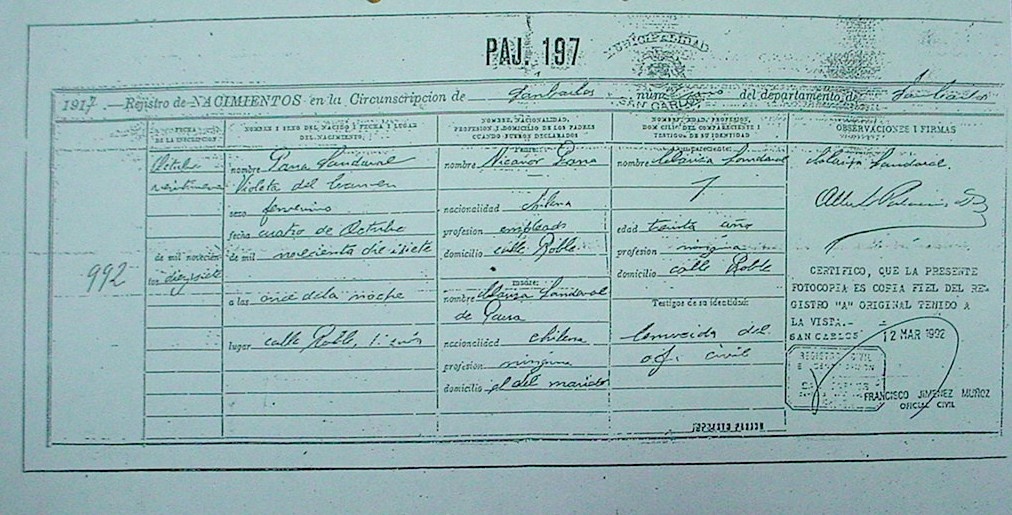 PAJ. 197
MUNICIPALIDAD
SAN CARLOS
1917 .— Registro de NACIMIENTOS en la Circunscripcion de San Carlos núm. del departamento de San Carlos
FECHA DE LA INSCRIPCION
NOMBRE I SEXO DEL NACIDO I FECHA I LUGAR DEL NACIMIENTO.
NOMBRE, NACIONALIDAD, PROFESION I DOMICILIO DE LOS PADRES CUANDO FUEREN DECLARADOS
NOMBRE, EDAD, PROFESION, DOMICILIO DEL COMPARECIENTE I TESTIGOS DE SU IDENTIDAD
OBSERVACIONES I FIRMAS
992
Octubre
de mil novecien
tos diezysiete
nombre Parra Sandoval
Violeta del Carmen
sexo femenino
fecha cuatro de Octubre
de mil novecientos
a las once de la noche
lugar calle Roble
nombre Nicanor Parra
nacionalidad chilena
profesion empleado
domicilio calle Roble
madre:
nombre Clarisa Sandoval
de Parra
nacionalidad chilena
profesion ninguna
domicilio el del marido
nombre Clarisa Sandoval
edad treinta año
profesion ninguna
domicilio calle Roble
Testigos de su identidad:
Conocida del
of. civil
Clarisa Sandoval
CERTIFICO, QUE LA PRESENTE
FOTOCOPIA ES COPIA FIEL DEL RE-
GISTRO "A" ORIGINAL TENIDO A
LA VISTA.-
SAN CARLOS 12 MAR 1992
REGISTRO CIVIL
FRANCISCO JIMENEZ MUÑOZ
OFICIAL CIVIL